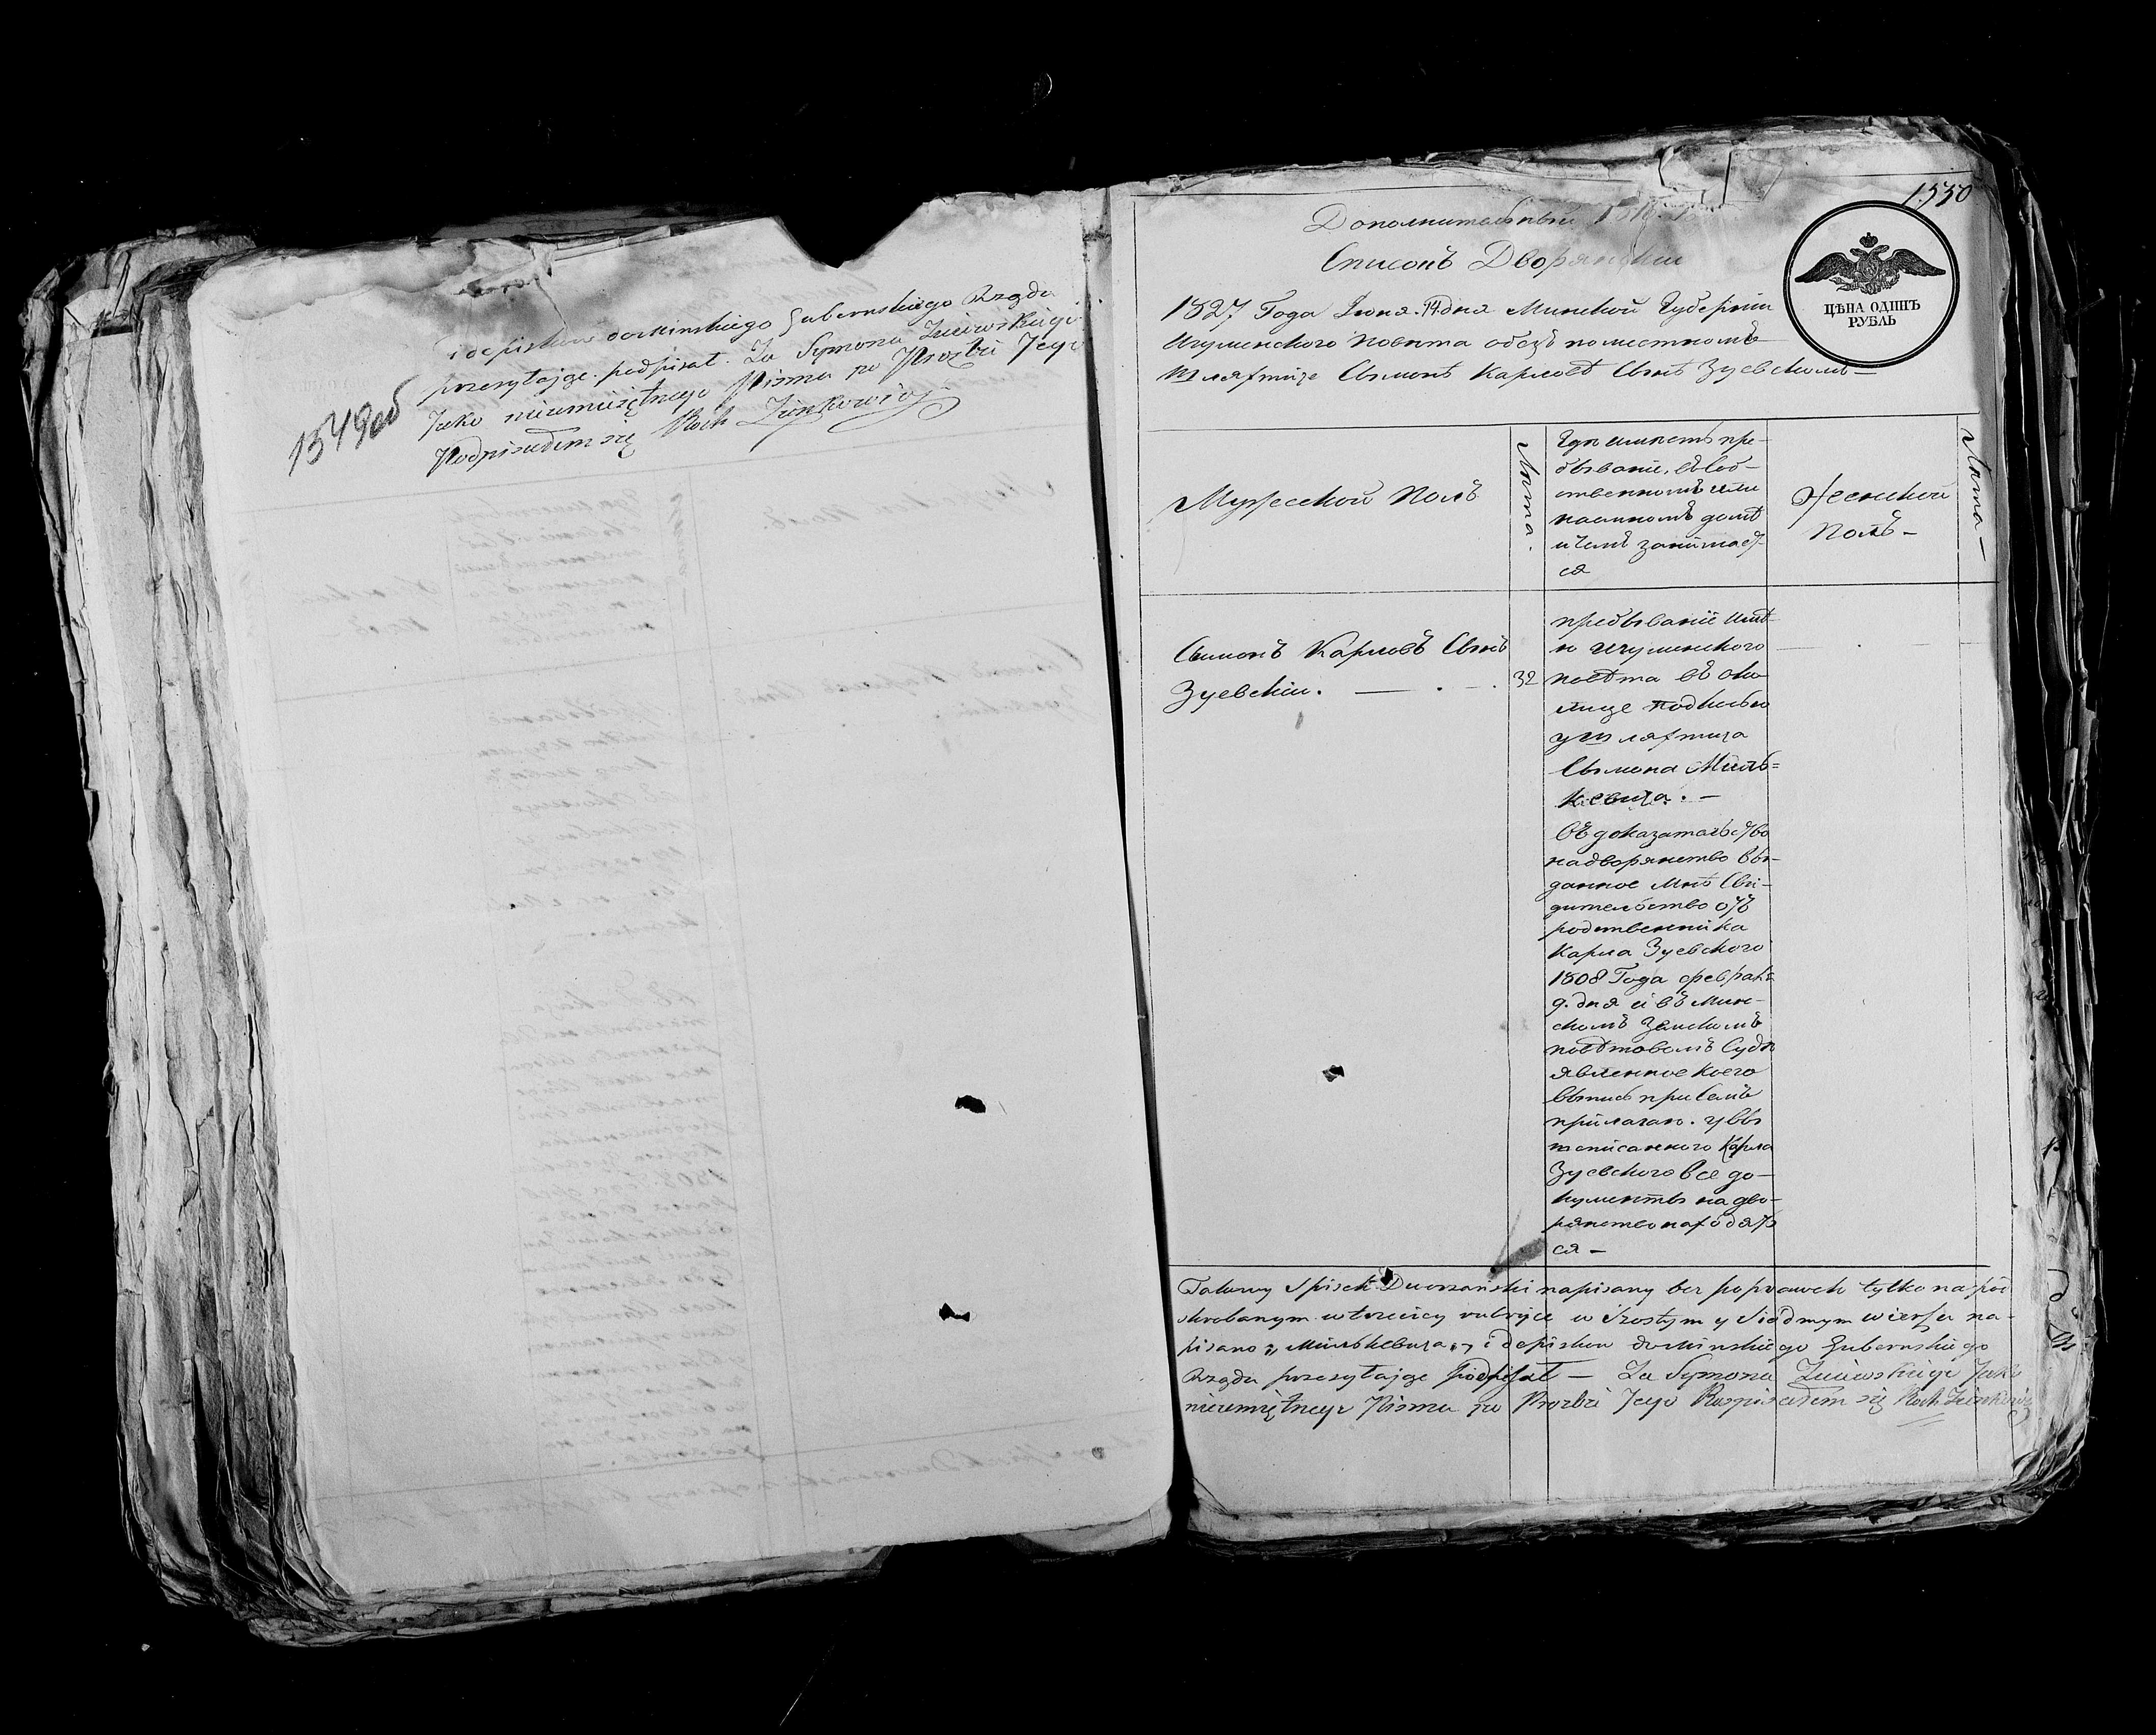 1549об
i depisków do Minskiego Gubernskiego Rządu
przesyłając podpisał. Za Symona Zuiewskiego
Jako nieumieiętnego Pisma po Proźbi Jego
Podpisałem się Roch Zienkowicz
1550
Дополнительный
Списокъ Дворянскій
ЦѢНА ОДИНЪ
РУБЛЬ
1827 Года Іюня 14 дня Минской Губерніи
Игуменского Повѣта объ
Шляхтиче Сымонѣ Карловѣ Сынѣ Зуевскомъ
Мужеской Полъ
Лѣта.
Гдѣ имѣетъ пре-
бываніе, въ соб-
ственномъ или
наемномъ домѣ
и чемъ занимает-
ся
Женской
Полъ —
Лѣта —
Сымонъ Карловъ Сынъ
Зуевскій. — . — .
32
пребываніе имѣ-
ю Игуменского
повѣта въ око-
лице
у шляхтича
Сымона Миль=
кевича. —
Въ доказательство
на дворянство вы-
данное мнѣ Сви-
дительство отъ
родственника
Карла Зуевского
1808 Года февраля
9. дня и въ Мин-
скомъ Земскомъ
повѣтовомъ Судѣ
явленное коего
выпись при семъ
прилагаю. у вы-
шеписанного Карла
Зуевского все до-
кументы на дво-
рянство находят-
ся —
Takowy Spisek Dworzański napisany bez poprawek tylko na pod
skrobanym w trzeciey rubryce w szostym y siodmym wierszu na-
pisano „Милькевича„ i depisków do Minskiego Gubernskiego
Rządu przesyłając podpisał — Za Symona Zuiewskiego Jako
nieumiętnego Pisma po Prozbi Jego Rospisałem się Roch Zienkowicz